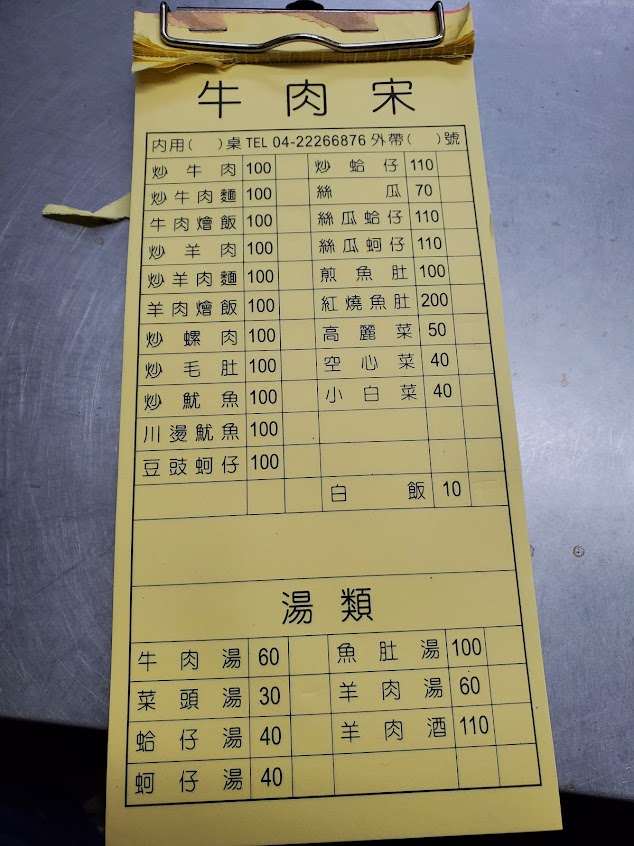 牛肉宋
內用( )桌 TEL 04-22266876 外帶( )號
炒牛肉 100 炒蛤仔 110
炒牛肉麵 100 絲瓜 70
牛肉燴飯 100 絲瓜蛤仔 110
炒羊肉 100 絲瓜蚵仔 110
炒羊肉麵 100 煎魚肚 100
羊肉燴飯 100 紅燒魚肚 200
炒螺肉 100 高麗菜 50
炒毛肚 100 空心菜 40
炒魷魚 100 小白菜 40
川燙魷魚 100
豆豉蚵仔 100
白飯 10
湯類
牛肉湯 60 魚肚湯 100
菜頭湯 30 羊肉湯 60
蛤仔湯 40 羊肉酒 110
蚵仔湯 40